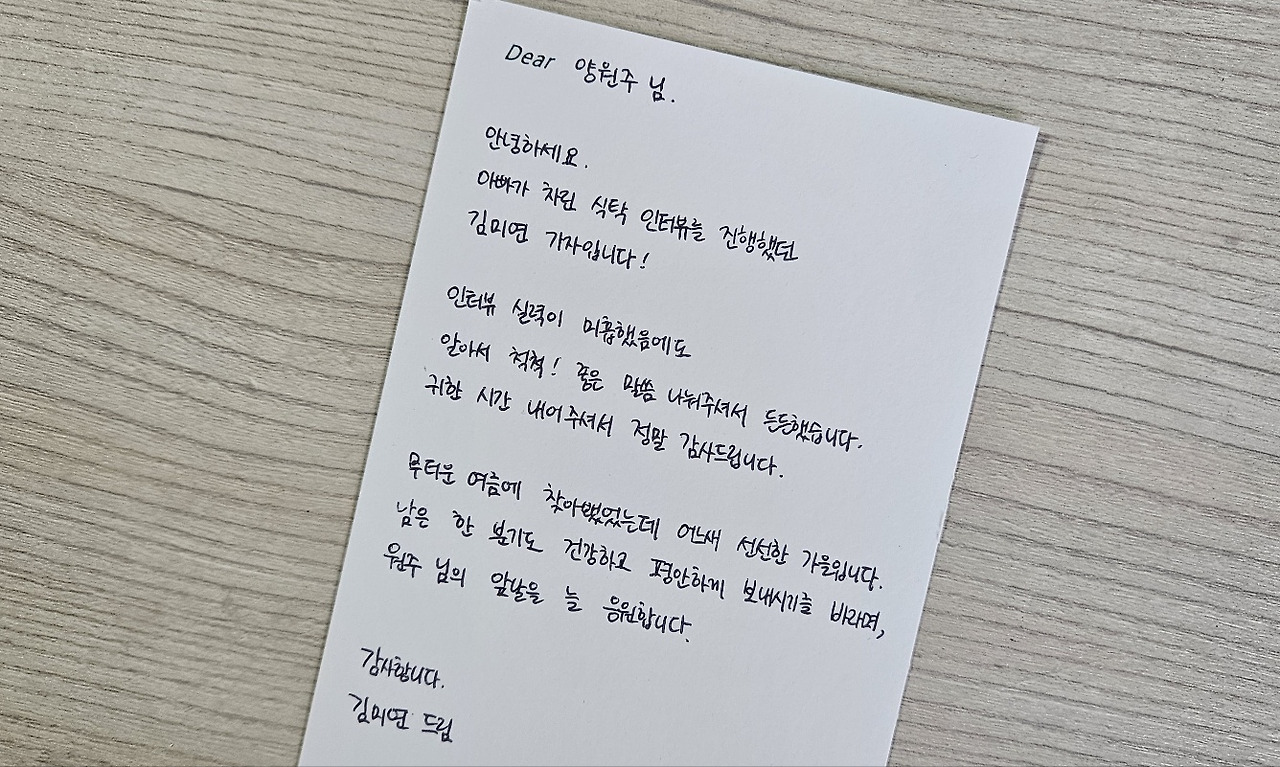 Dear 양원주 님.
안녕하세요.
아빠가 차린 식탁 인터뷰를 진행했던
김미연 기자입니다!
인터뷰 실력이 미흡했음에도
알아서 척척! 좋은 말씀 나눠주셔서 든든했습니다.
귀한 시간 내어주셔서 정말 감사드립니다.
무더운 여름에 찾아뵀었는데 어느새 선선한 가을입니다.
남은 한 분기도 건강하고 평안하게 보내시기를 바라며,
원주 님의 앞날을 늘 응원합니다.
감사합니다.
김미연 드림